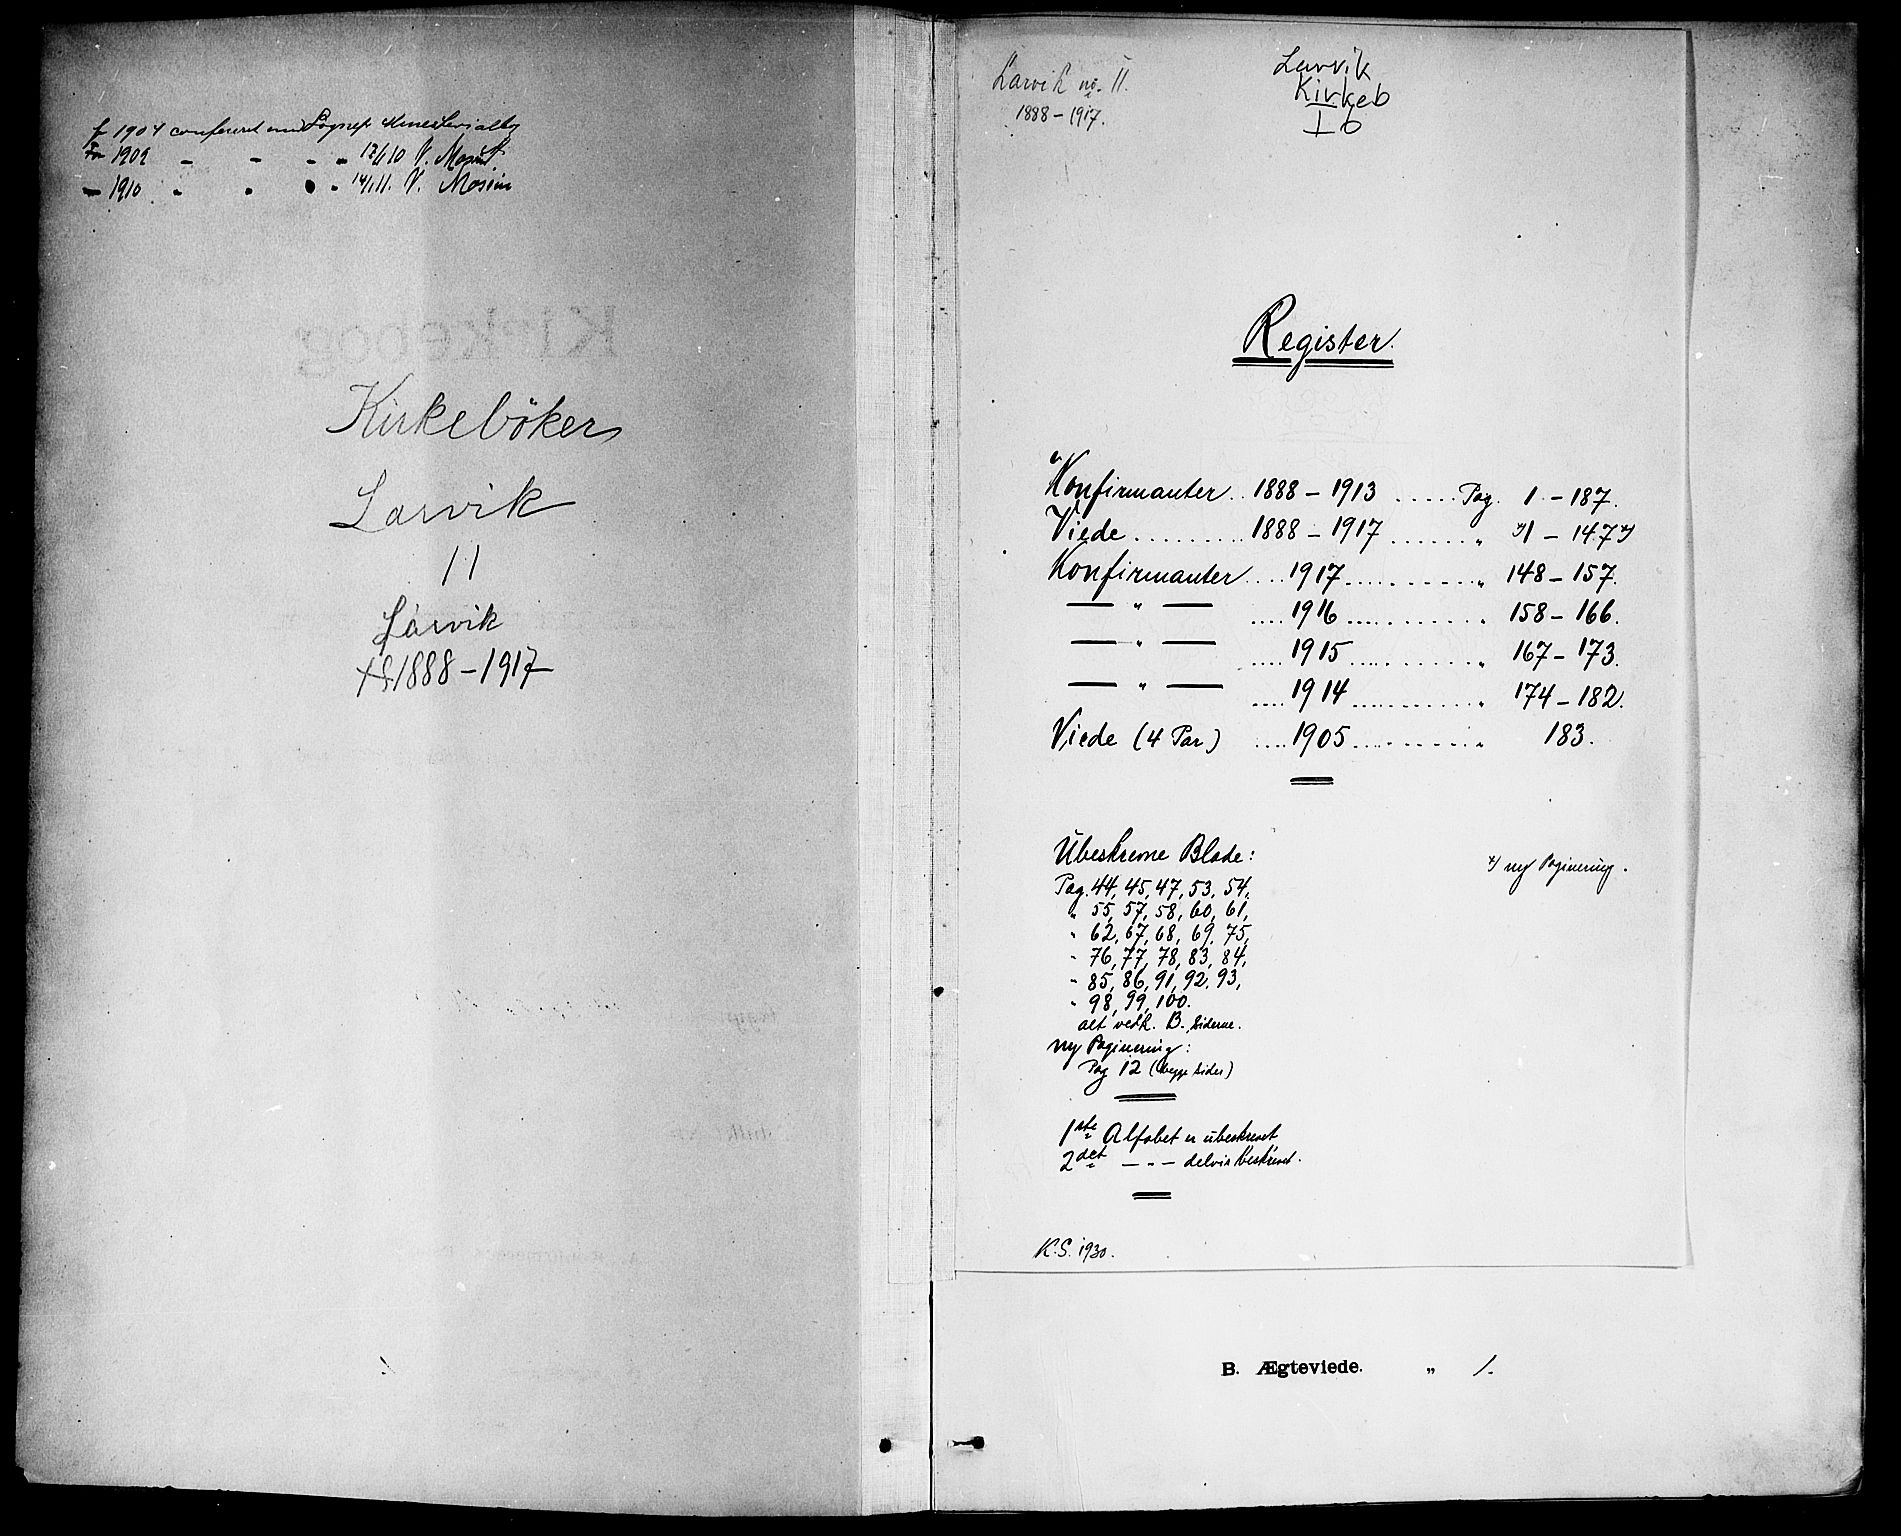 f 1904 confereret med Sognep. Ministerialbog
For 1909 - - - - 12/1 10 V. Mosin
— 1910 - - - - 14/1 11. V. Mosin
Kirkebog
Kirkebøker
Larvik
11
Larvik
1888-1917
Larvik no. 11.
1888-1917.
Larvik
Kirkeb
I b
Register.
Konfirmanter.. 1888 - 1913 ..... Pag. 1 - 187.
Viede......... 1888 - 1917 ....... „ x) 1 - 147 x)
Konfirmanter.... 1917.......... „ 148 - 157.
— „ — .... 1916 .......... „ 158 - 166.
— „ — .... 1915 .......... „ 167 - 173.
— „ — .... 1914 .......... „ 174 - 182.
Viede (4 Par) .... 1905 .......... „ 183.
Ubeskrevne Blade:
x) ny Paginering.
Pag. 44, 45, 47, 53, 54,
„ 55, 57, 58, 60, 61,
„ 62, 67, 68, 69, 75,
„ 76, 77, 78, 83, 84,
„ 85, 86, 91, 92, 93,
„ 98, 99, 100.
alt vedk. B. Siderne.
ny Paginering:
Pag 12 (begge Sider)
1ste Alfabet er ubeskrevet
2det — „ — delvis beskrevet.
K.S. 1930.
B. Ægteviede. „ 1.